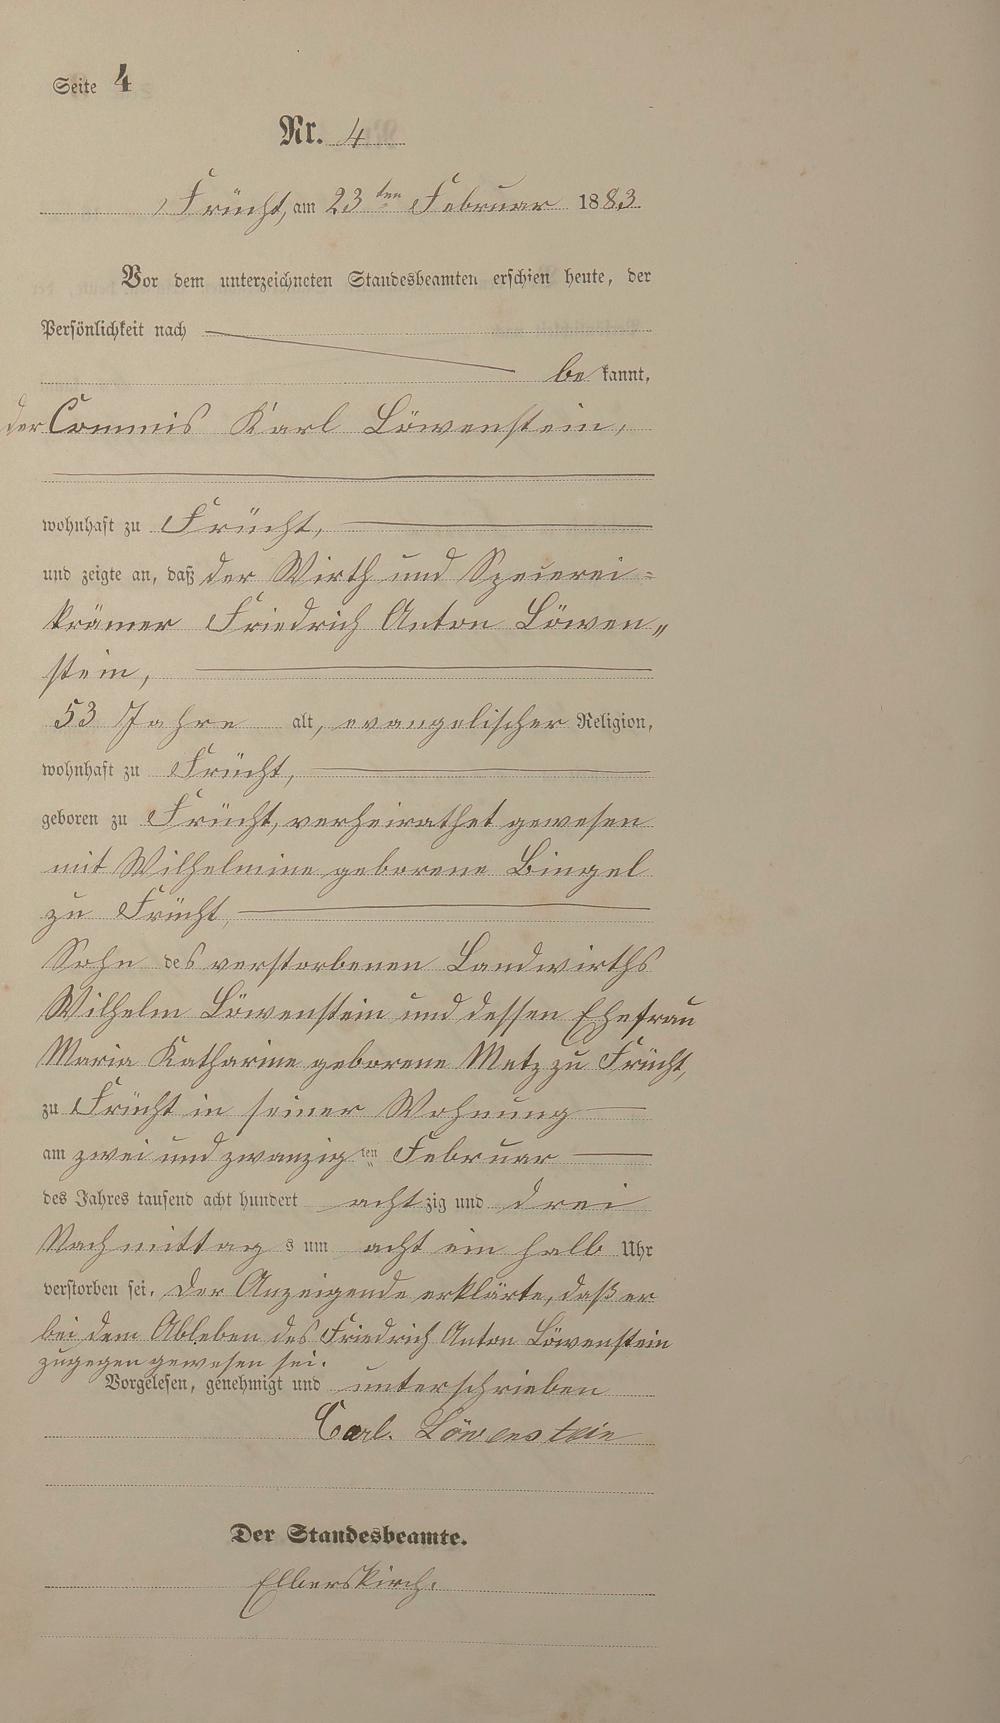 Seite 4
Nr. 4
Frücht, am 23ten Februar 1883
Vor dem unterzeichneten Standesbeamten erschien heute, der
Persönlichkeit nach
bekannt,
der Commis Karl Löwenstein,
wohnhaft zu Frücht,
und zeigte an, daß der Wirth und Spezerei=
krämer Friedrich Anton Löwen„
stein,
53 Jahre alt, evangelischer Religion,
wohnhaft zu Frücht,
geboren zu Frücht, verheirathet gewesen
mit Wilhelmine geborene Bingel
zu Frücht,
Sohn des verstorbenen Landwirths
Wilhelm Löwenstein und dessen Ehefrau
Maria Katharine geborene Metz zu Frücht,
zu Frücht in seiner Wohnung
am zwei und zwanzigten Februar
des Jahres tausend acht hundert achtzig und drei
Nachmittags um acht ein halb Uhr
verstorben sei. Der Anzeigende erklärte, daß er
bei dem Ableben des Friedrich Anton Löwenstein
zugegen gewesen sei.
Vorgelesen, genehmigt und unterschrieben
Carl. Löwenstein
Der Standesbeamte.
Elberskirch.